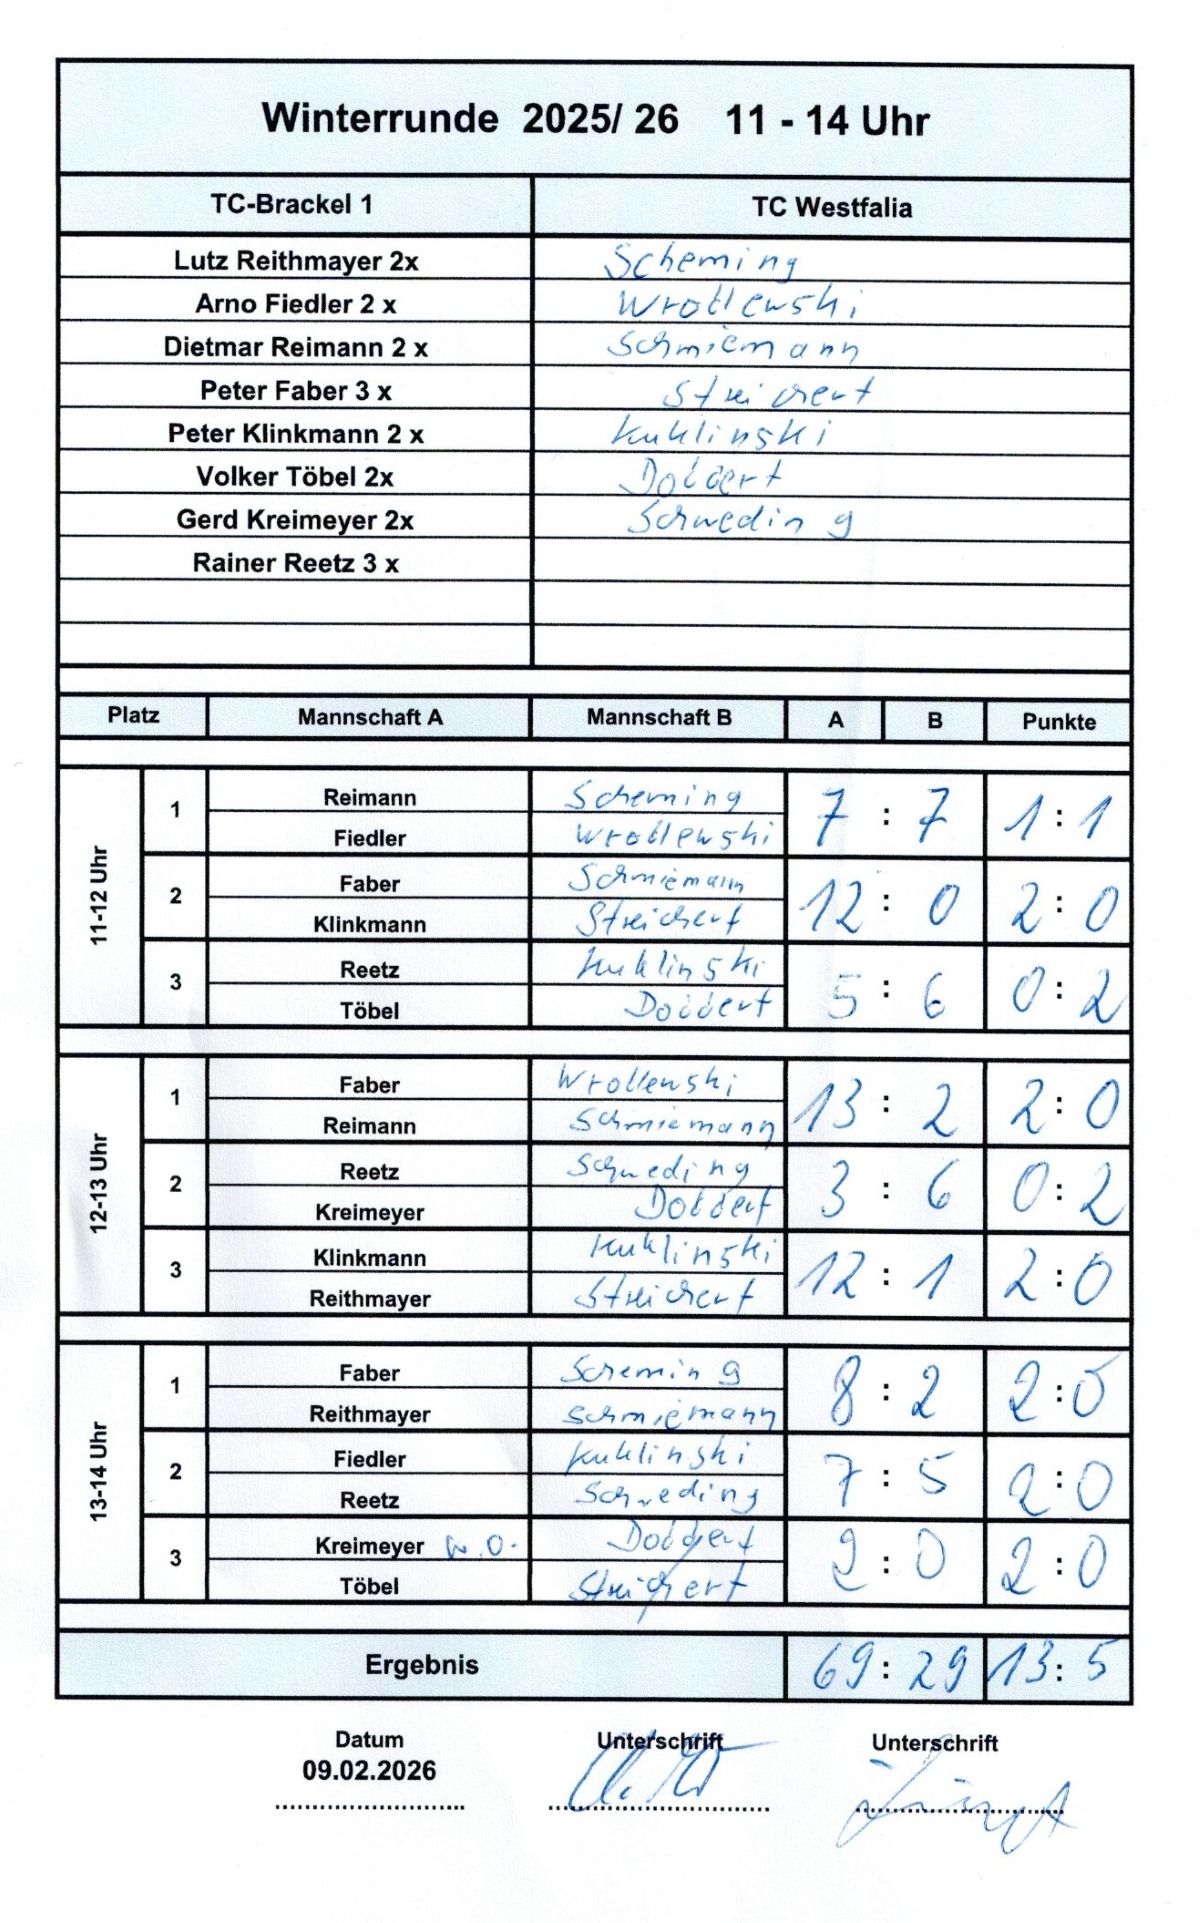 Winterrunde 2025/ 26 11 - 14 Uhr
TC-Brackel 1 TC Westfalia
Lutz Reithmayer 2x Scheming
Arno Fiedler 2 x Wrotlewski
Dietmar Reimann 2 x Schmiemann
Peter Faber 3 x Streichert
Peter Klinkmann 2 x Kuklinski
Volker Töbel 2x Doddert
Gerd Kreimeyer 2x Schweding
Rainer Reetz 3 x
Platz Mannschaft A Mannschaft B A B Punkte
11-12 Uhr
1 Reimann Scheming 7 : 7 1 : 1
Fiedler Wrotlewski
2 Faber Schmiemann 12 : 0 2 : 0
Klinkmann Streichert
3 Reetz Kuklinski 5 : 6 0 : 2
Töbel Doddert
12-13 Uhr
1 Faber Wrotlewski 13 : 2 2 : 0
Reimann Schmiemann
2 Reetz Schweding 3 : 6 0 : 2
Kreimeyer Doddert
3 Klinkmann Kuklinski 12 : 1 2 : 0
Reithmayer Streichert
13-14 Uhr
1 Faber Scheming 8 : 2 2 : 0
Reithmayer Schmiemann
2 Fiedler Kuklinski 7 : 5 2 : 0
Reetz Schweding
3 Kreimeyer w.o. Doddert 2 : 0 2 : 0
Töbel Streichert
Ergebnis 69 : 29 13 : 5
Datum Unterschrift Unterschrift
09.02.2026